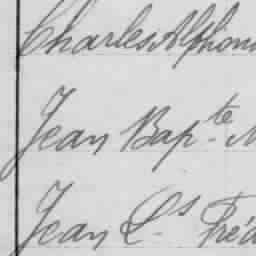 Charles Alphon
Jean Bapte
Jean Ls Fréd